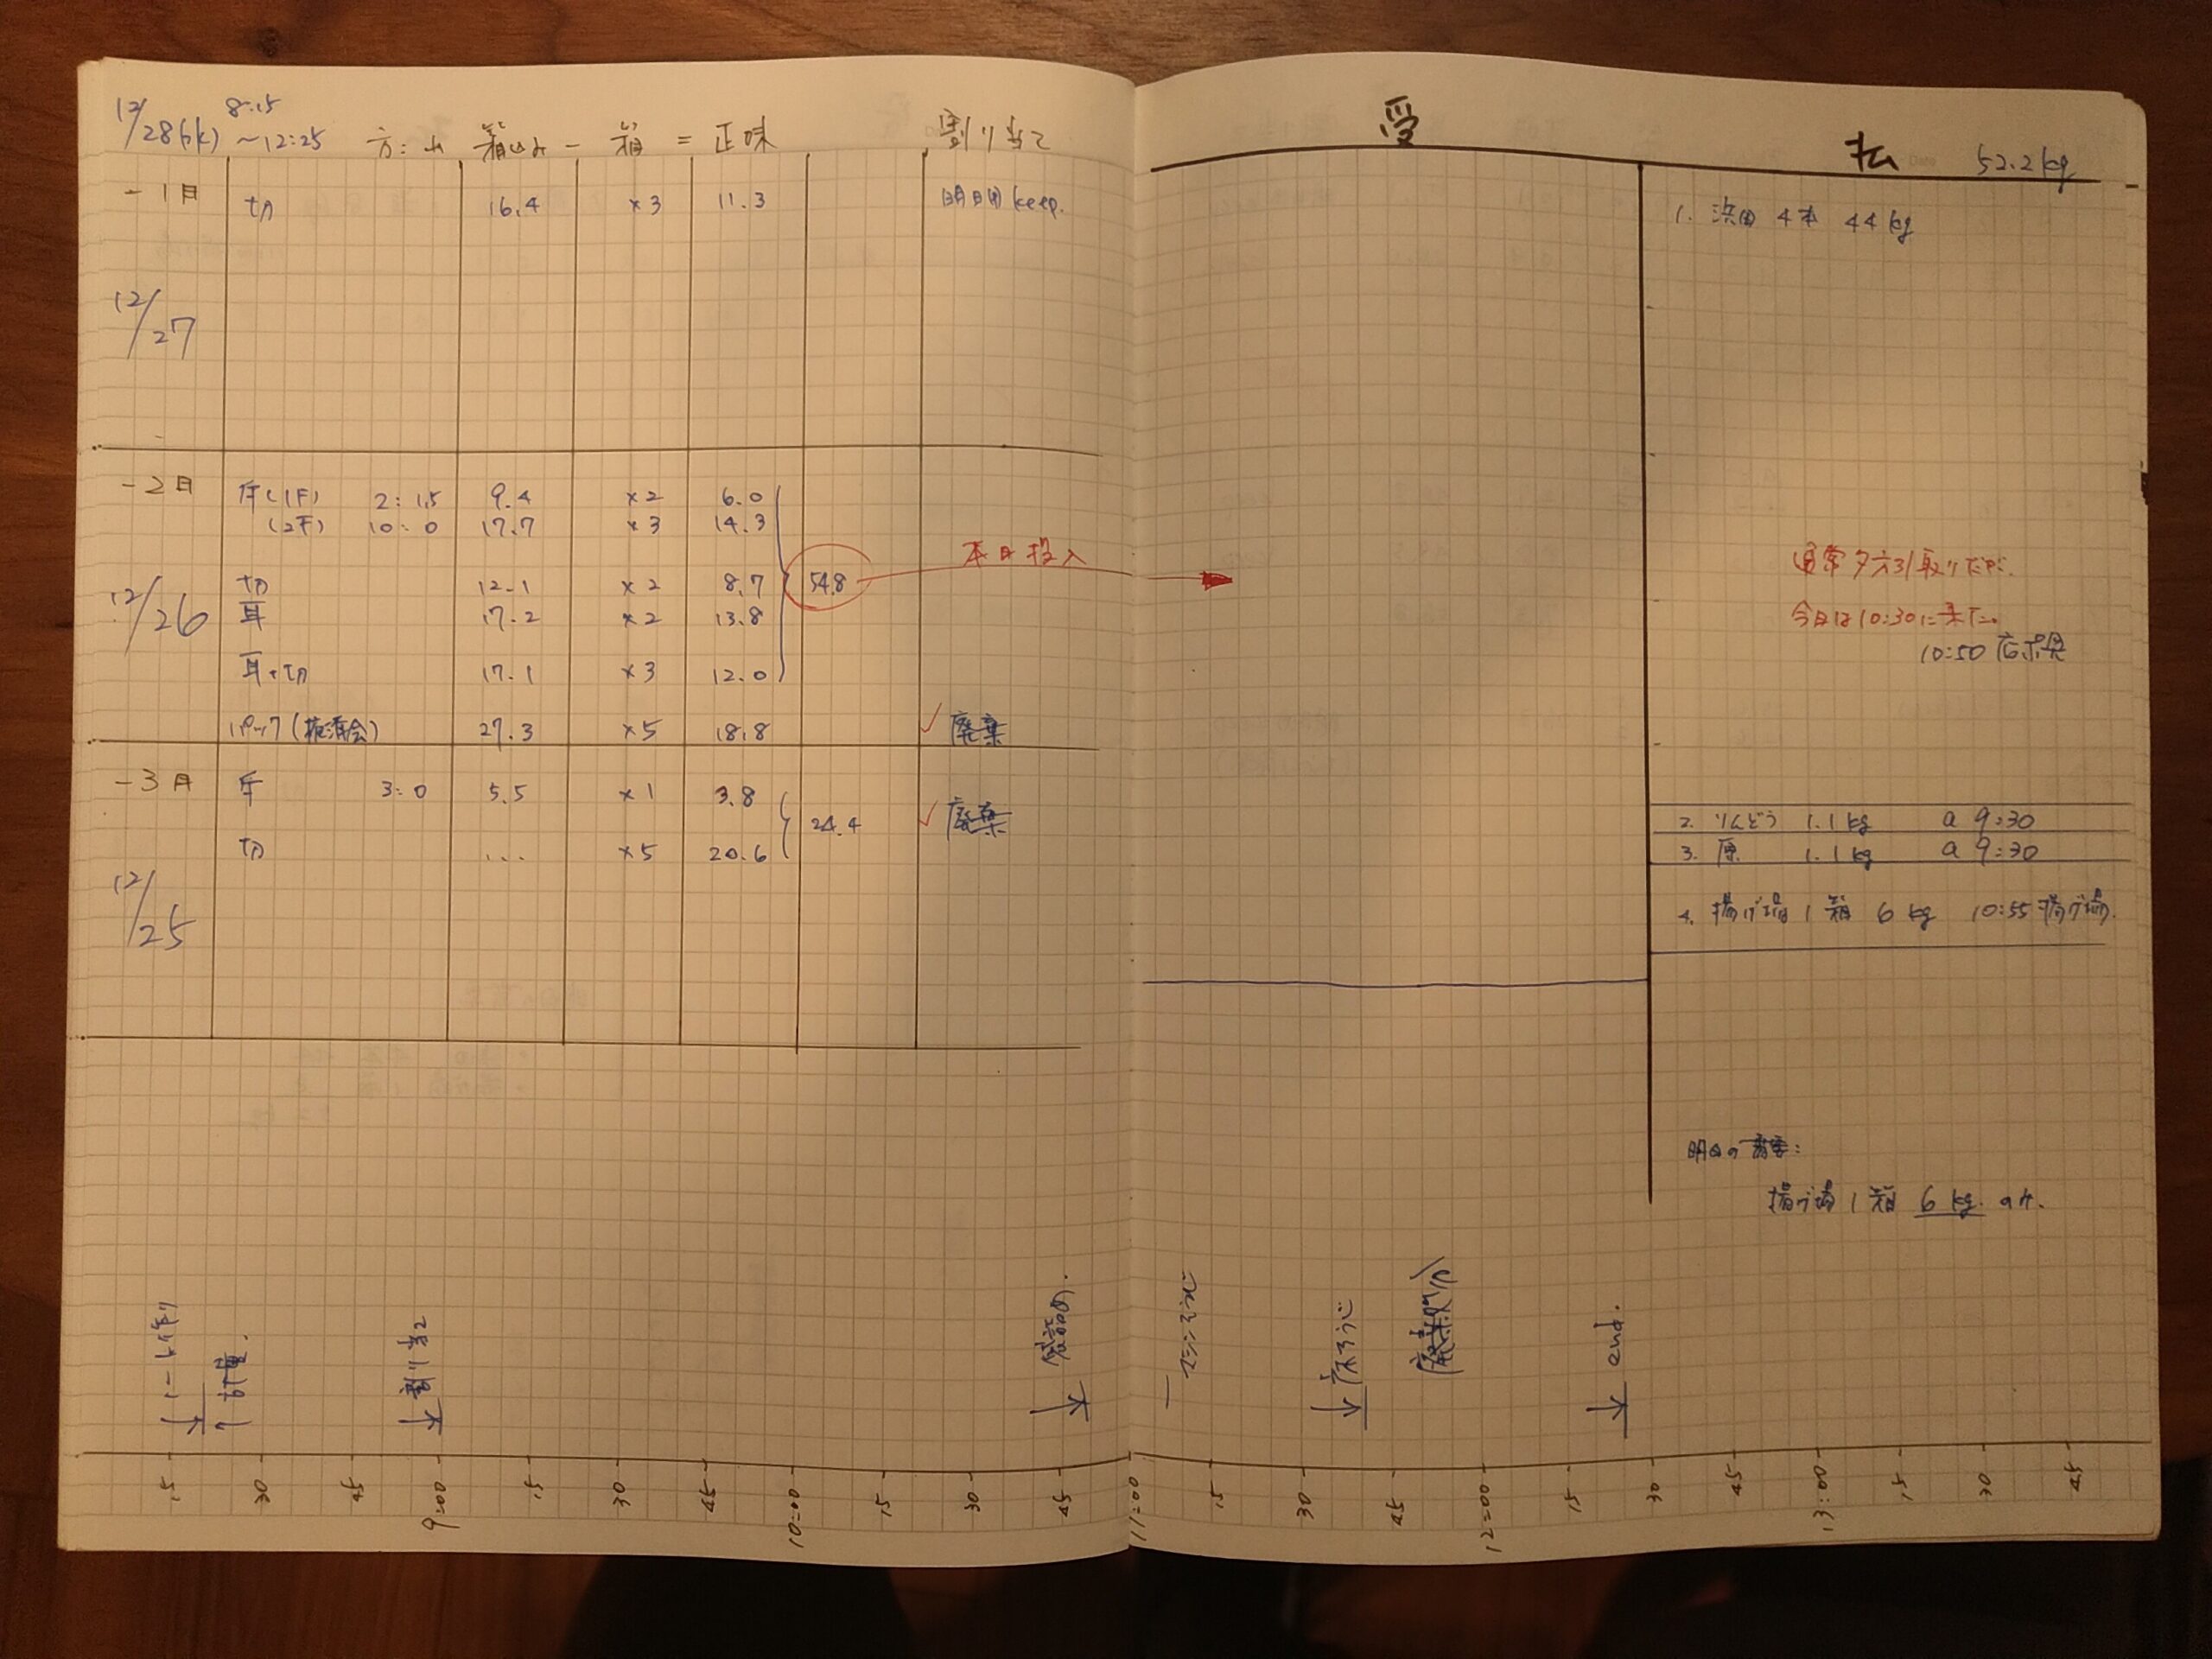 12/28(水) 8:15 ~12:25
箱込み - 箱 = 正味 割り当て
-1日 切 16.4 ×3 11.3 明日用 keep.
12/27
-2日 (1F) 2:15 9.4 ×2 6.0
(2F) 10:0 17.7 ×3 14.3
12/26 切 12.1 ×2 8.7 54.8 本日投入
耳 17.2 ×2 13.8
耳・切 17.1 ×3 12.0
パック 27.3 ×5 18.8 ✓ 廃棄
-3日 3:0 5.5 ×1 3.8
24.4 ✓ 廃棄
切 ... ×5 20.6
12/25
受
払 52.2kg
1. 浜田 4本 44kg
通常夕方引取りだが、
今日は10:30に来た。
10:50
2. りんどう 1.1kg a 9:30
3. 原 1.1kg a 9:30
4. 揚げ場 1箱 6kg 10:55 揚げ場.
明日の
揚げ場 1箱 6kg.
ノート作り
計量.
割り当て
袋詰め.
マシンそうじ
床そうじ
end.
15 30 45 9:00 15 30 45 10:00 15 30 45 11:00 15 30 45 12:00 15 30 45 13:00 15 30 45